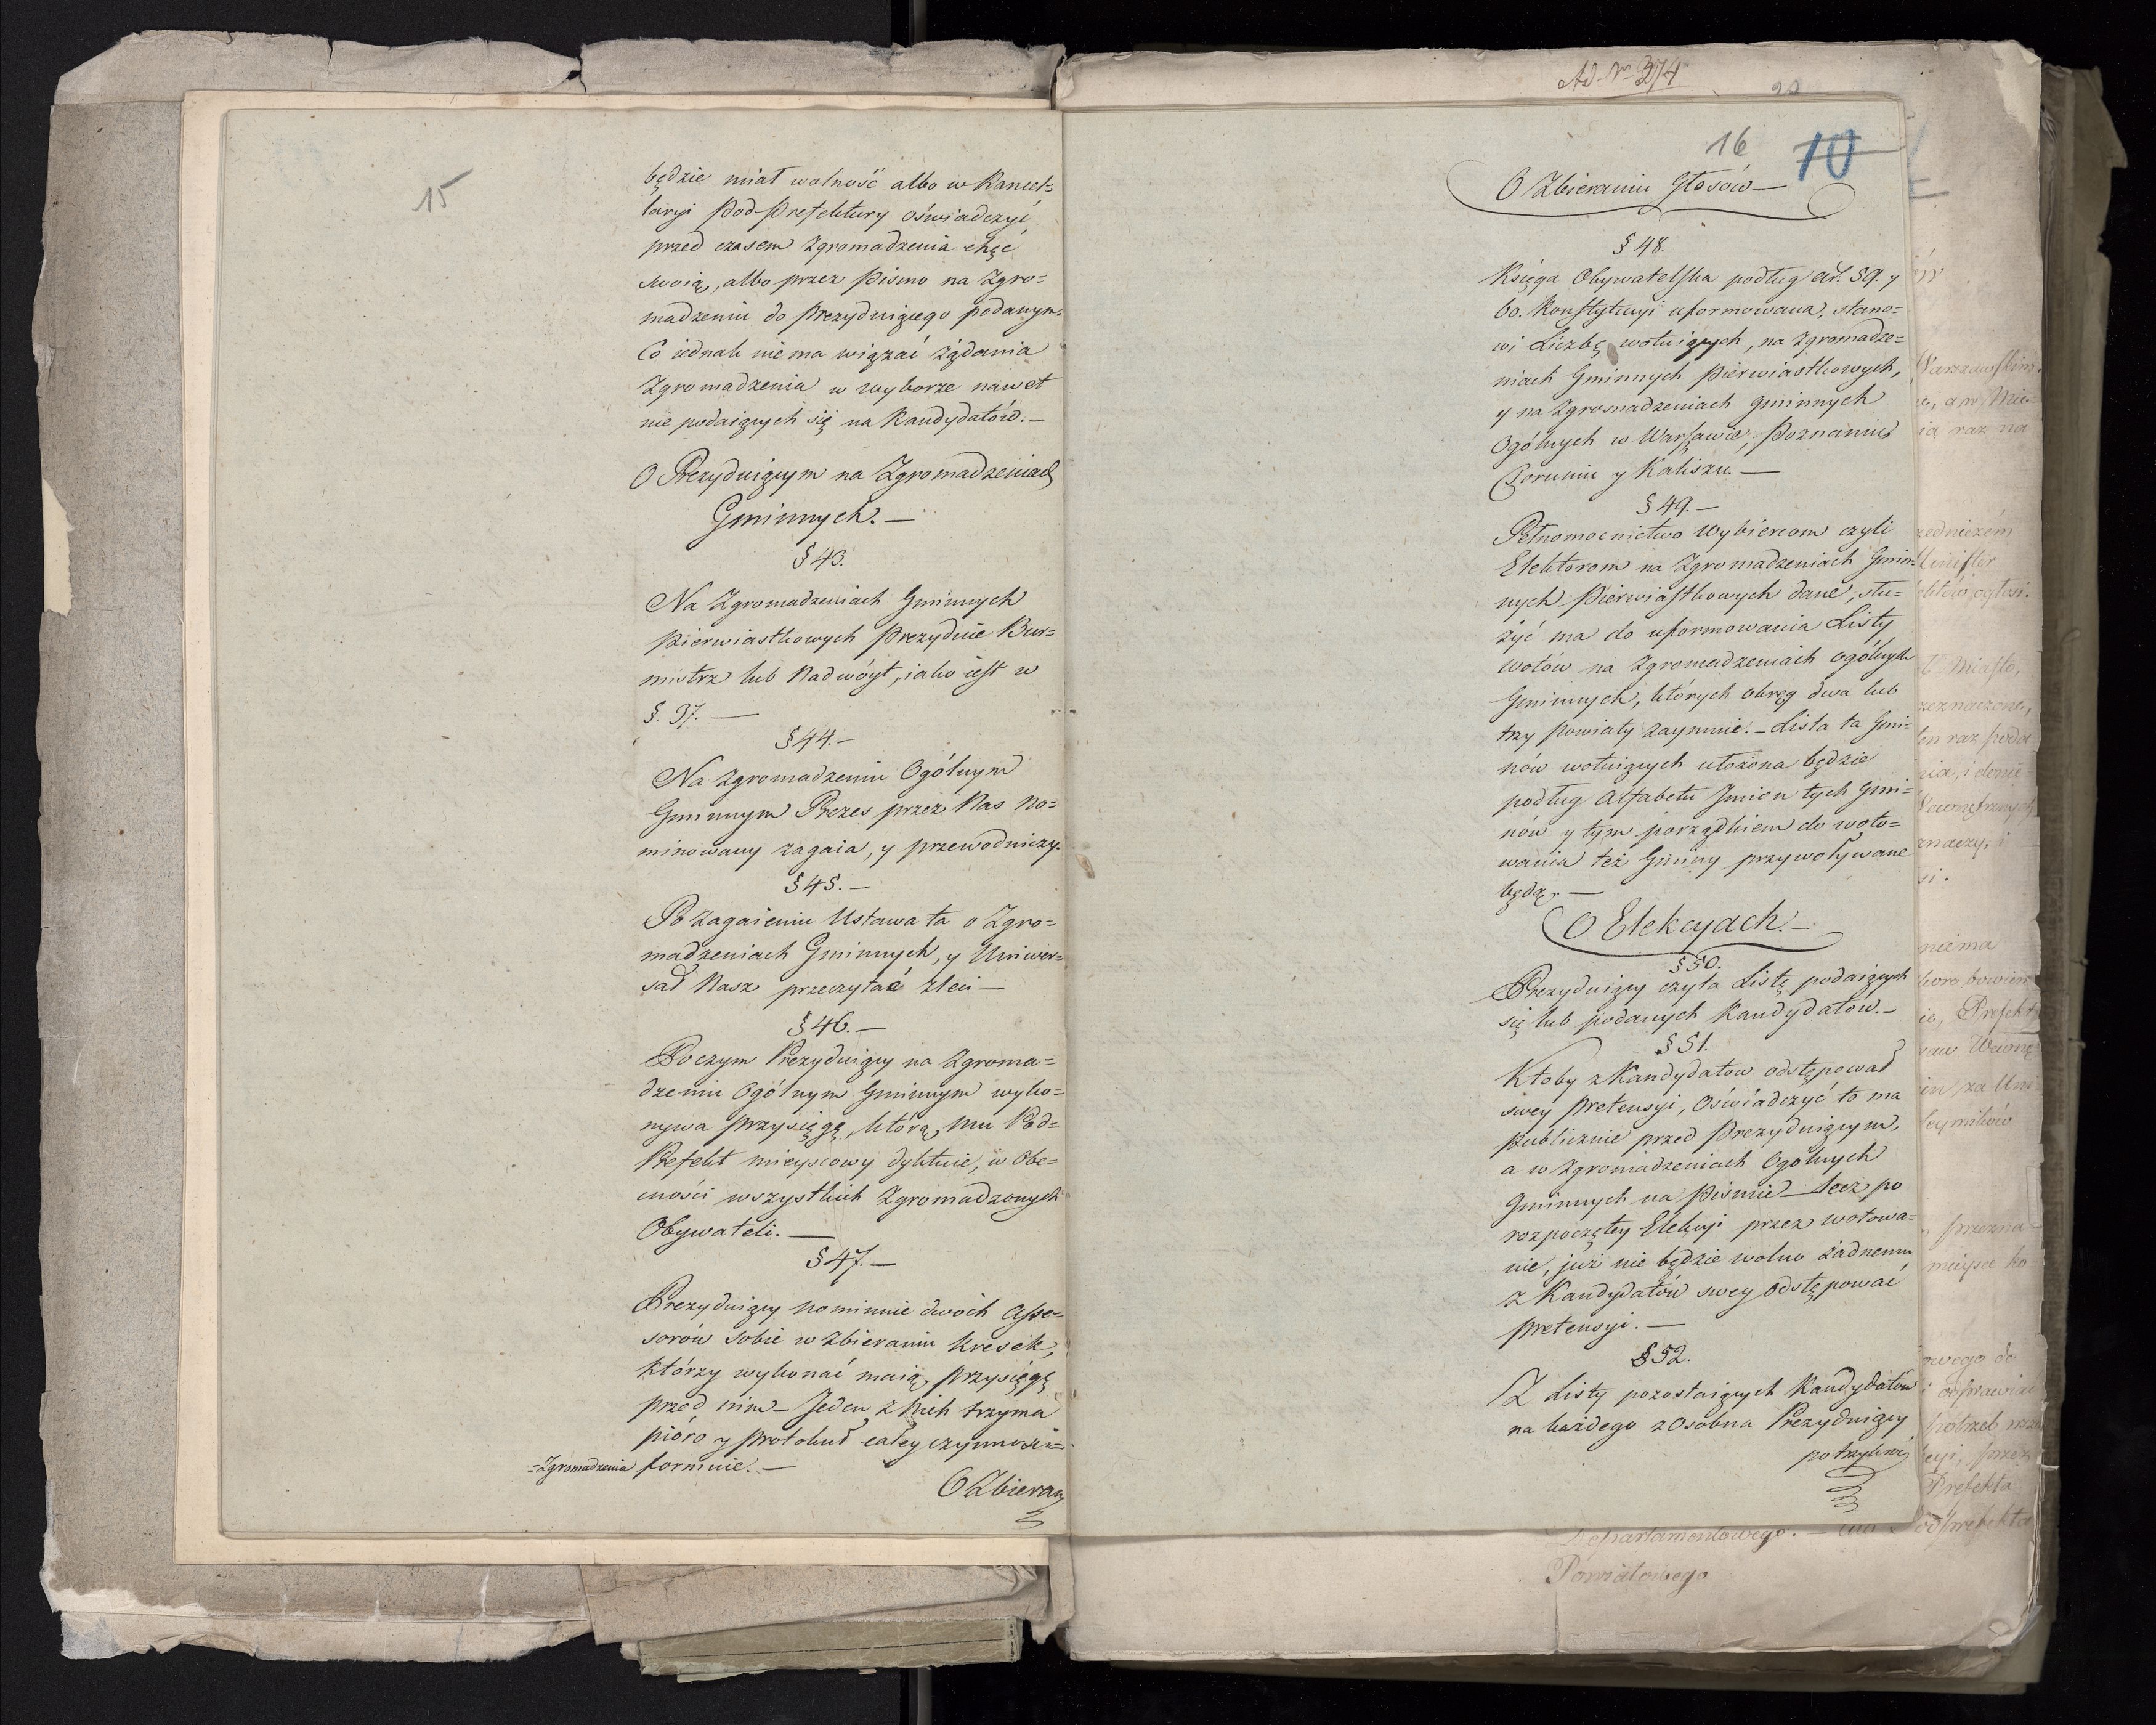 15
będzie miał wolność albo w Kancel=
laryi Pod-Prefektury oświadczyć
przed czasem Zgromadzenia chęć
swoią, albo przez Pismo na Zgro=
madzeniu do Prezyduiącego podanym.
Co iednak nie ma wiązać żądania
Zgromadzenia w wyborze nawet
nie podaiących się na Kandydatów. —
O Prezyduiącym na Zgromadzeniach
Gminnych. —
§ 43.
Na Zgromadzeniach Gminnych
Pierwiastkowych Prezyduie Bur=
mistrz lub Nadwóyt, iako iest w
§. 37. —
§ 44. —
Na Zgromadzeniu Ogólnym
Gminnym Prezes przez Nas no=
minowany zagaia, y przewodniczy.
§ 45. —
Po zagaieniu Ustawa ta o Zgro=
madzeniach Gminnych, y Uniwer=
sał Nasz przeczytać zleci —
§ 46. —
Poczym Prezyduiący na Zgroma=
dzeniu Ogólnym Gminnym wyko=
nywa przysięgę, którą mu Pod=
Prefekt mieyscowy dyktuie, w Obe=
cności wszystkich Zgromadzonych
Obywateli. —
§ 47. —
Prezyduiący nominuie dwóch Asse=
sorów sobie w zbieraniu kresek,
którzy wykonać maią przysięgę
przed nim — Jeden z Nich trzyma
pióro y protokuł całey czynności=
=Zgromadzenia formuie. —
O Zbieran
Ad No 374
20
16 10
O Zbieraniu Głosów —
§ 48.
Księga Obywatelska podług art. 59. y
60. Konstytucyi uformowana, stano=
wi Liczbę wotuiących, na Zgromadze=
niach Gminnych Pierwiastkowych,
y na Zgromadzeniach gminnych
Ogólnych w Warszawie, Poznaniu,
Toruniu y Kaliszu. —
§ 49. —
Pełnomocnictwo Wybiercom czyli
Elektorom na Zgromadzeniach Gmin=
nych Pierwiastkowych dane, słu=
żyć ma do uformowania Listy
wotów na Zgromadzeniach Ogólnych
Gminnych, których okręg dwa lub
trzy Powiaty zaymuie. — Lista ta Gmi=
nów wotuiących ułożona będzie
podług Alfabetu Jmion tych Gmi=
nów y tym porządkiem do woto=
wania też Gminy przywoływane
będą. —
O Elekcyach. —
§ 50.
Prezyduiący czyta Listę podaiących
się lub podanych Kandydatów. —
§ 51.
Ktoby z Kandydatow odstępował
swey pretensyi, Oświadczyć to ma
publicznie przed Prezyduiącym,
a w Zgromadzeniach Ogólnych
Gminnych na Piśmie — lecz po
rozpoczętey Elekcyi przez wotowa=
nie, już nie będzie wolno żadnemu
z Kandydatów swey odstępować
pretensyi. —
§ 52.
Z Listy pozostaiących Kandydatów
na każdego z Osobna Prezyduiący
potrzykroć
Departamentowego.
Powiatowego